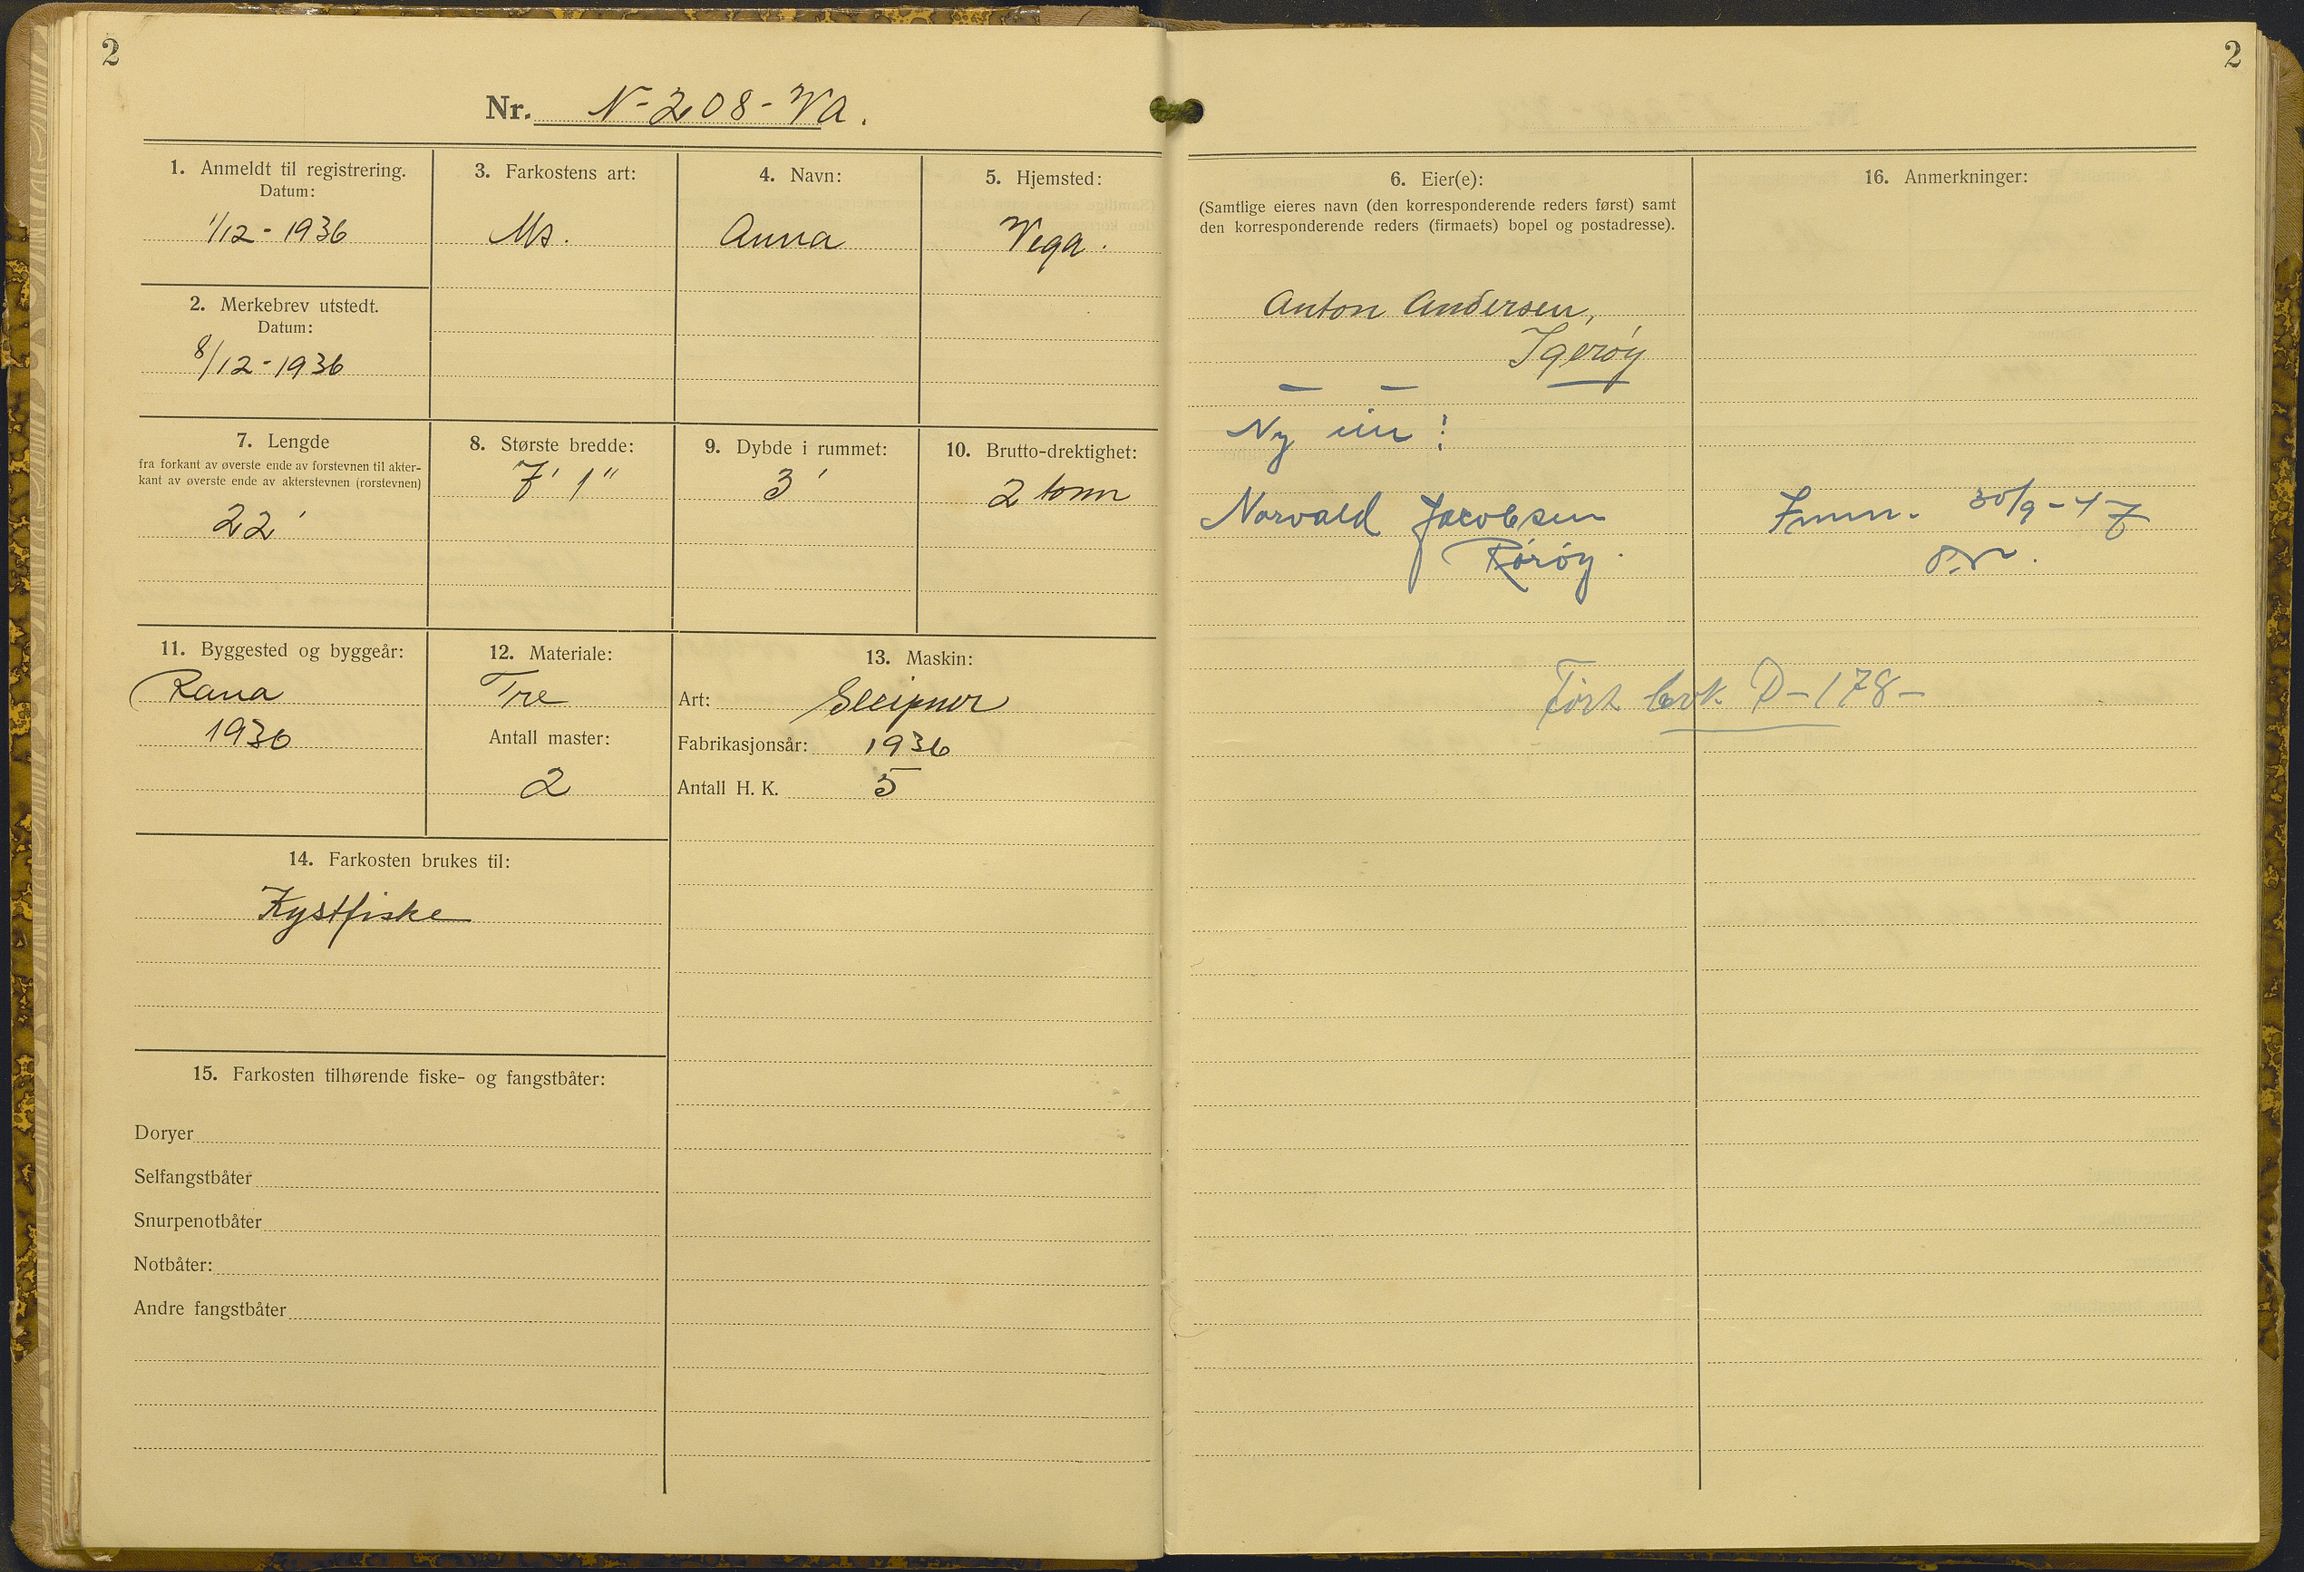 2
Nr. N-208-VA.
1. Anmeldt til registrering.
Datum:
1/12-1936
2. Merkebrev utstedt.
Datum:
8/12-1936
3. Farkostens art:
Ms.
4. Navn:
Anna
5. Hjemsted:
Vega.
7. Lengde
fra forkant av øverste ende av forstevnen til akter-
kant av øverste ende av akterstevnen (rorstevnen)
22'
8. Største bredde:
7' 1"
9. Dybde i rummet:
3'
10. Brutto-drektighet:
2 tonn
11. Byggested og byggeår:
Rana
1936
12. Materiale:
Tre
Antall master:
2
13. Maskin:
Art: Sleipner
Fabrikasjonsår: 1936
Antall H. K. 5
14. Farkosten brukes til:
Kystfiske
15. Farkosten tilhørende fiske- og fangstbåter:
Doryer
Selfangstbåter
Snurpenotbåter
Notbåter:
Andre fangstbåter
2
6. Eier(e):
(Samtlige eieres navn (den korresponderende reders først) samt
den korresponderende reders (firmaets) bopel og postadresse).
Anton Andersen,
Igerøy
Ny eier:
Norvald Jacobsen
Rørøy.
16. Anmerkninger:
30/9-47
Ført 178-